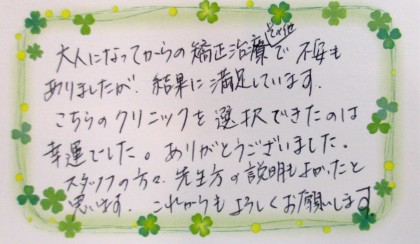 大人になってからの矯正治療で 不安も
ありましたが、結果に満足しています。
こちらのクリニックを選択できたのは
幸運でした。ありがとうございました。
スタッフの方々、先生方の説明もよかったと
思います。これからもよろしくお願いします